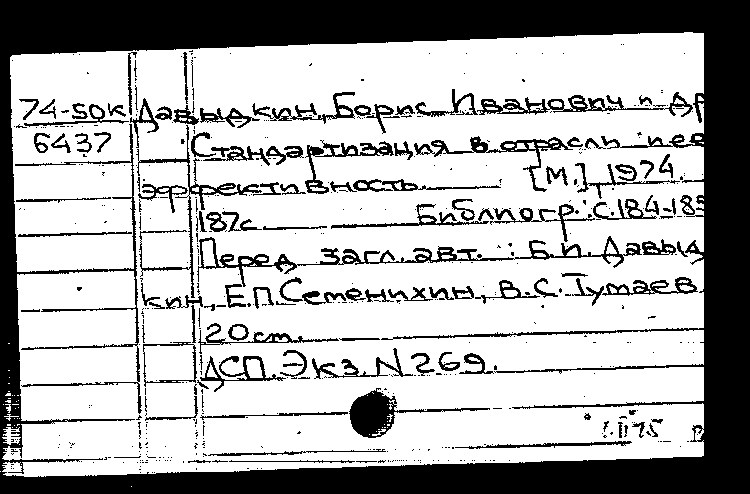 74-50к Давыдкин, Борис Иванович и др
6437 Стандартизация в отрасли и ее
эффективность. [М.], 1974.
187с. Библиогр.: с.184-185
Перед загл. авт.: Б.И. Давыд
кин, Е.П. Семенихин, В.С. Тумаев.
20 см.
ДСП. Экз. N 269.
1.II 75